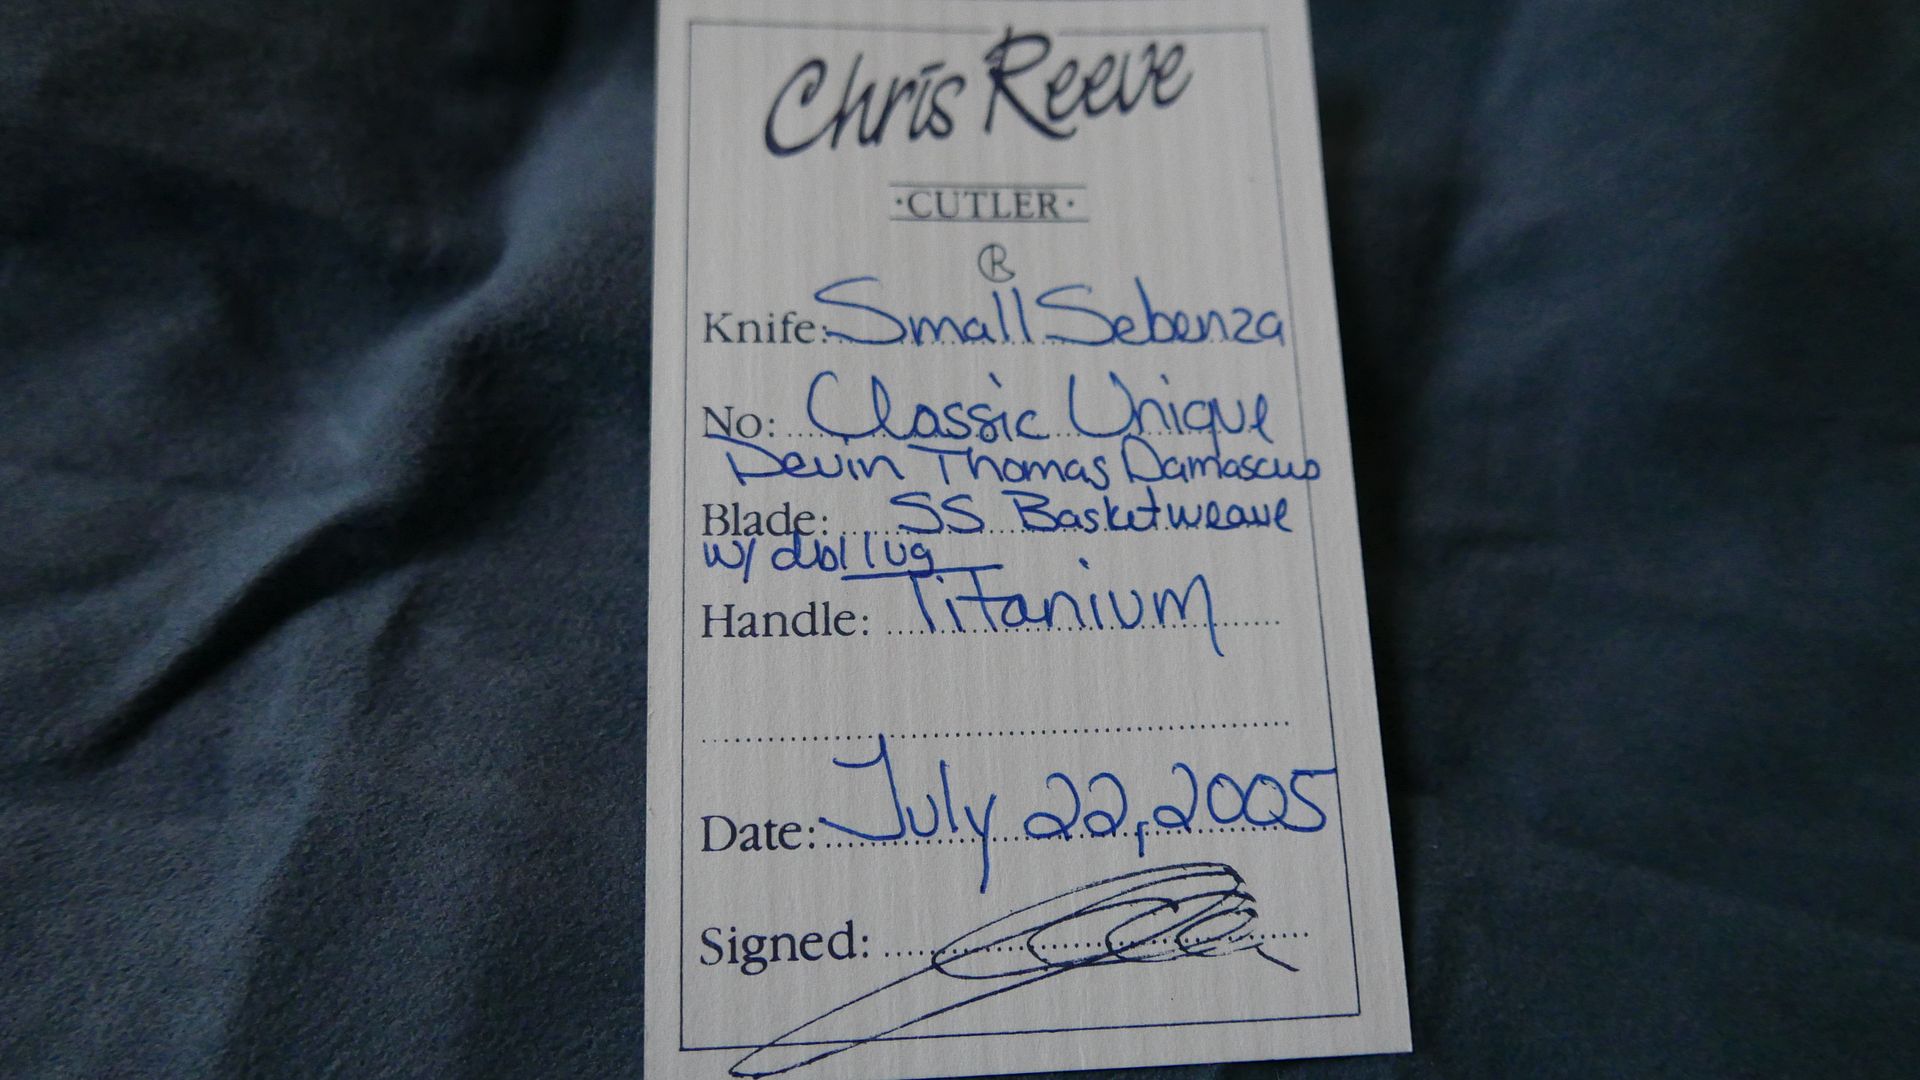 Chris Reeve
·CUTLER·
R
Knife: Small Sebenza
No: Classic Unique
Devin Thomas Damascus
Blade: SS Basketweave
w/ dbl lug
Handle: Titanium
Date: July 22, 2005
Signed: